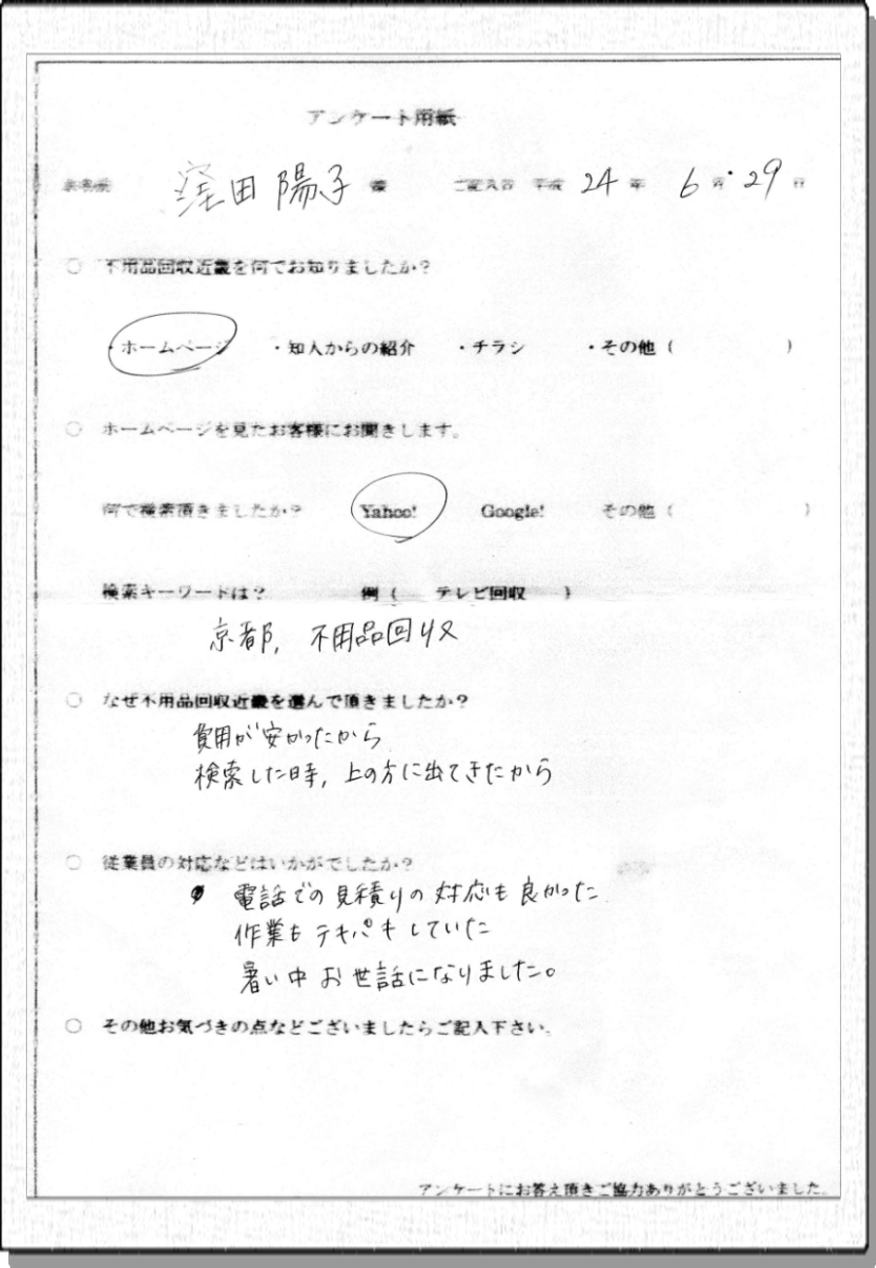 アンケート用紙
お名前 窪田陽子 様 ご記入日 平成 24 年 6 月 29 日
○ 不用品回収近畿を何でお知りましたか？
・ホームページ ・知人からの紹介 ・チラシ ・その他（ ）
○ ホームページを見たお客様にお聞きします。
何で検索頂きましたか？ Yahoo! Google! その他（ ）
検索キーワードは？ 例（ テレビ回収 ）
京都, 不用品回収
○ なぜ不用品回収近畿を選んで頂きましたか？
費用が安かったから
検索した時, 上の方に出てきたから
○ 従業員の対応などはいかがでしたか？
電話での見積りの対応も良かった
作業もテキパキしていた
暑い中お世話になりました。
○ その他お気づきの点などございましたらご記入下さい。
アンケートにお答え頂きご協力ありがとうございました。